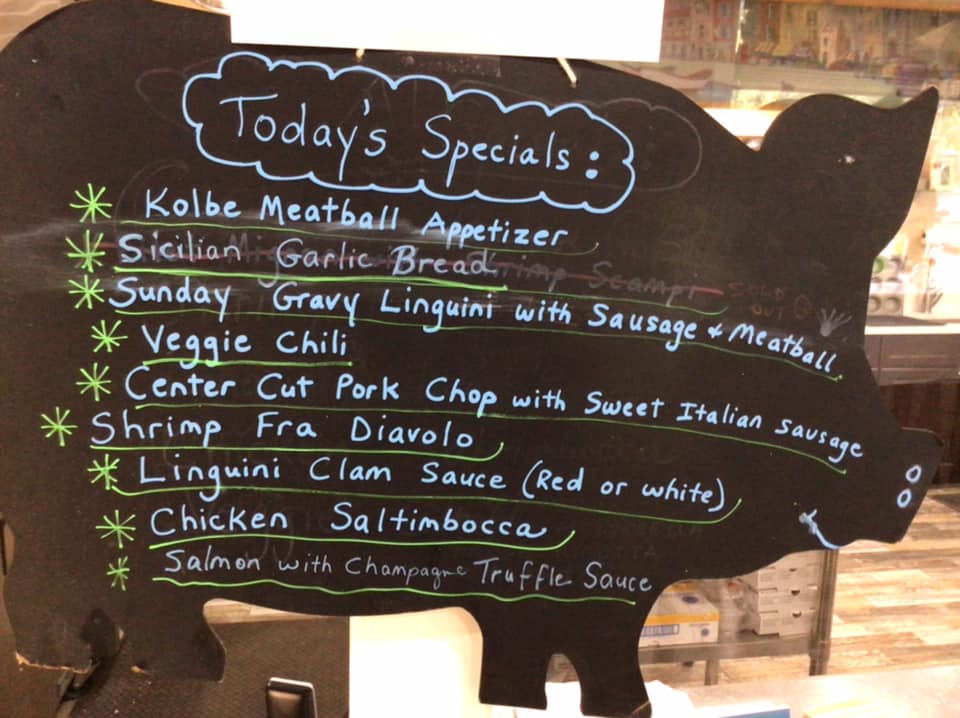 Today's Specials:
* Kolbe Meatball Appetizer
* Sicilian Garlic Bread
* Sunday Gravy Linguini with Sausage + Meatball
* Veggie Chili
* Center Cut Pork Chop with Sweet Italian Sausage
* Shrimp Fra Diavolo
* Linguini Clam Sauce (Red or white)
* Chicken Saltimbocca
* Salmon with Champagne Truffle Sauce